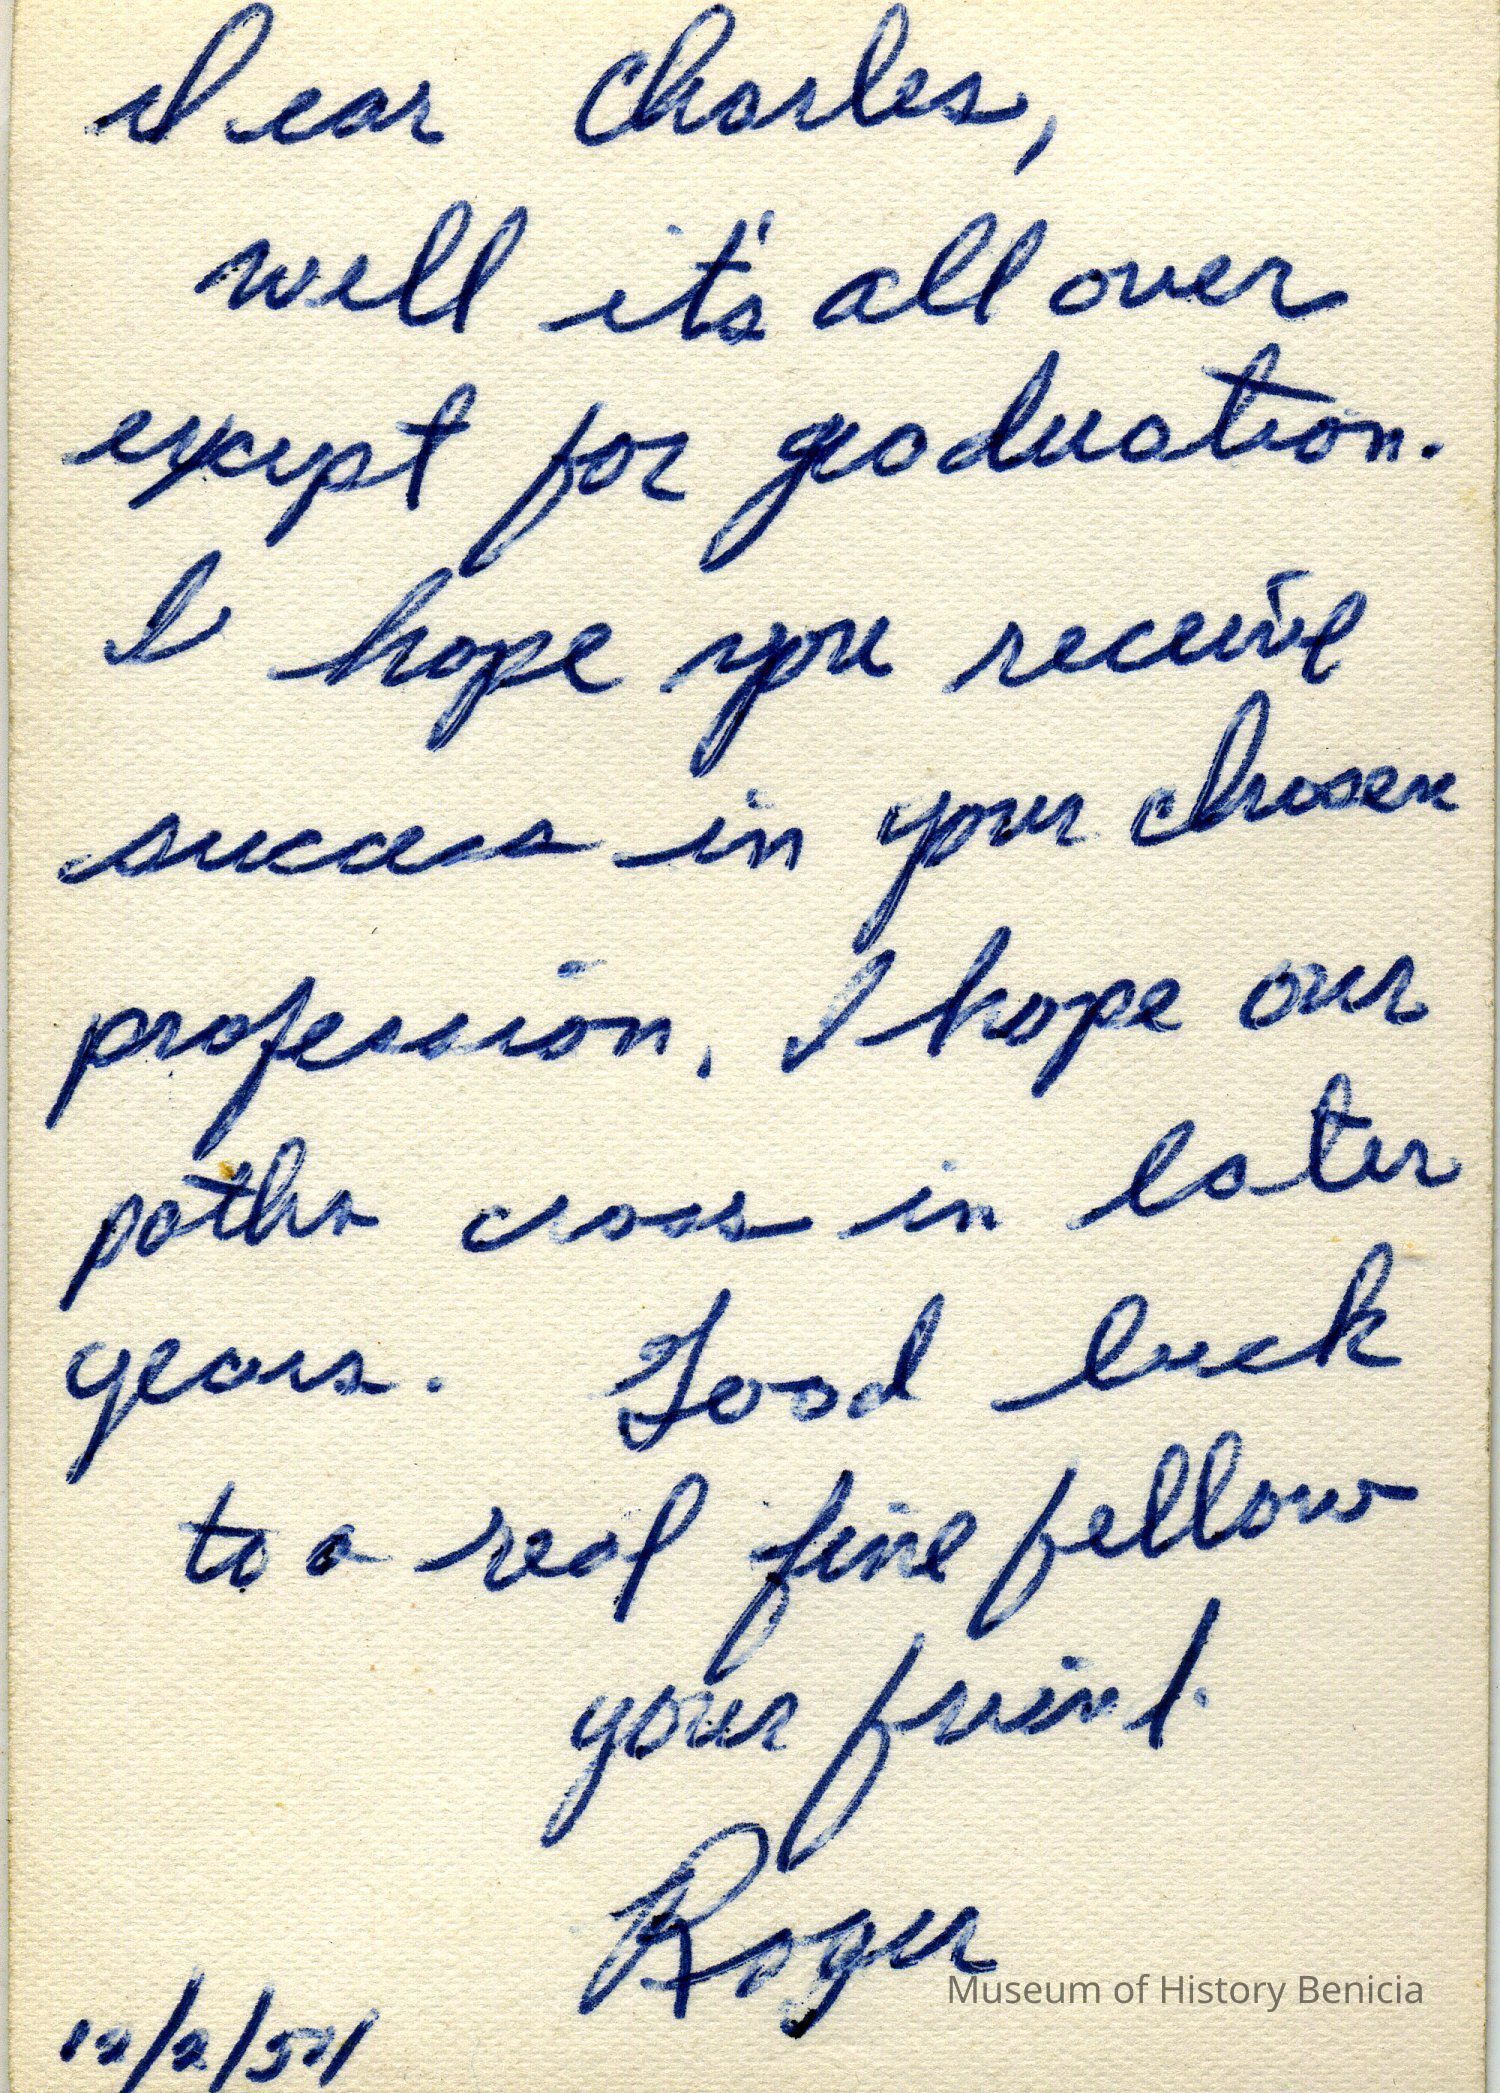 Dear Charles,
well it's all over
except for graduation.
I hope you receive
success in your chosen
profession. I hope our
paths cross in later
years. Good luck
to a real fine fellow
your friend.
Roger
Museum of History Benicia